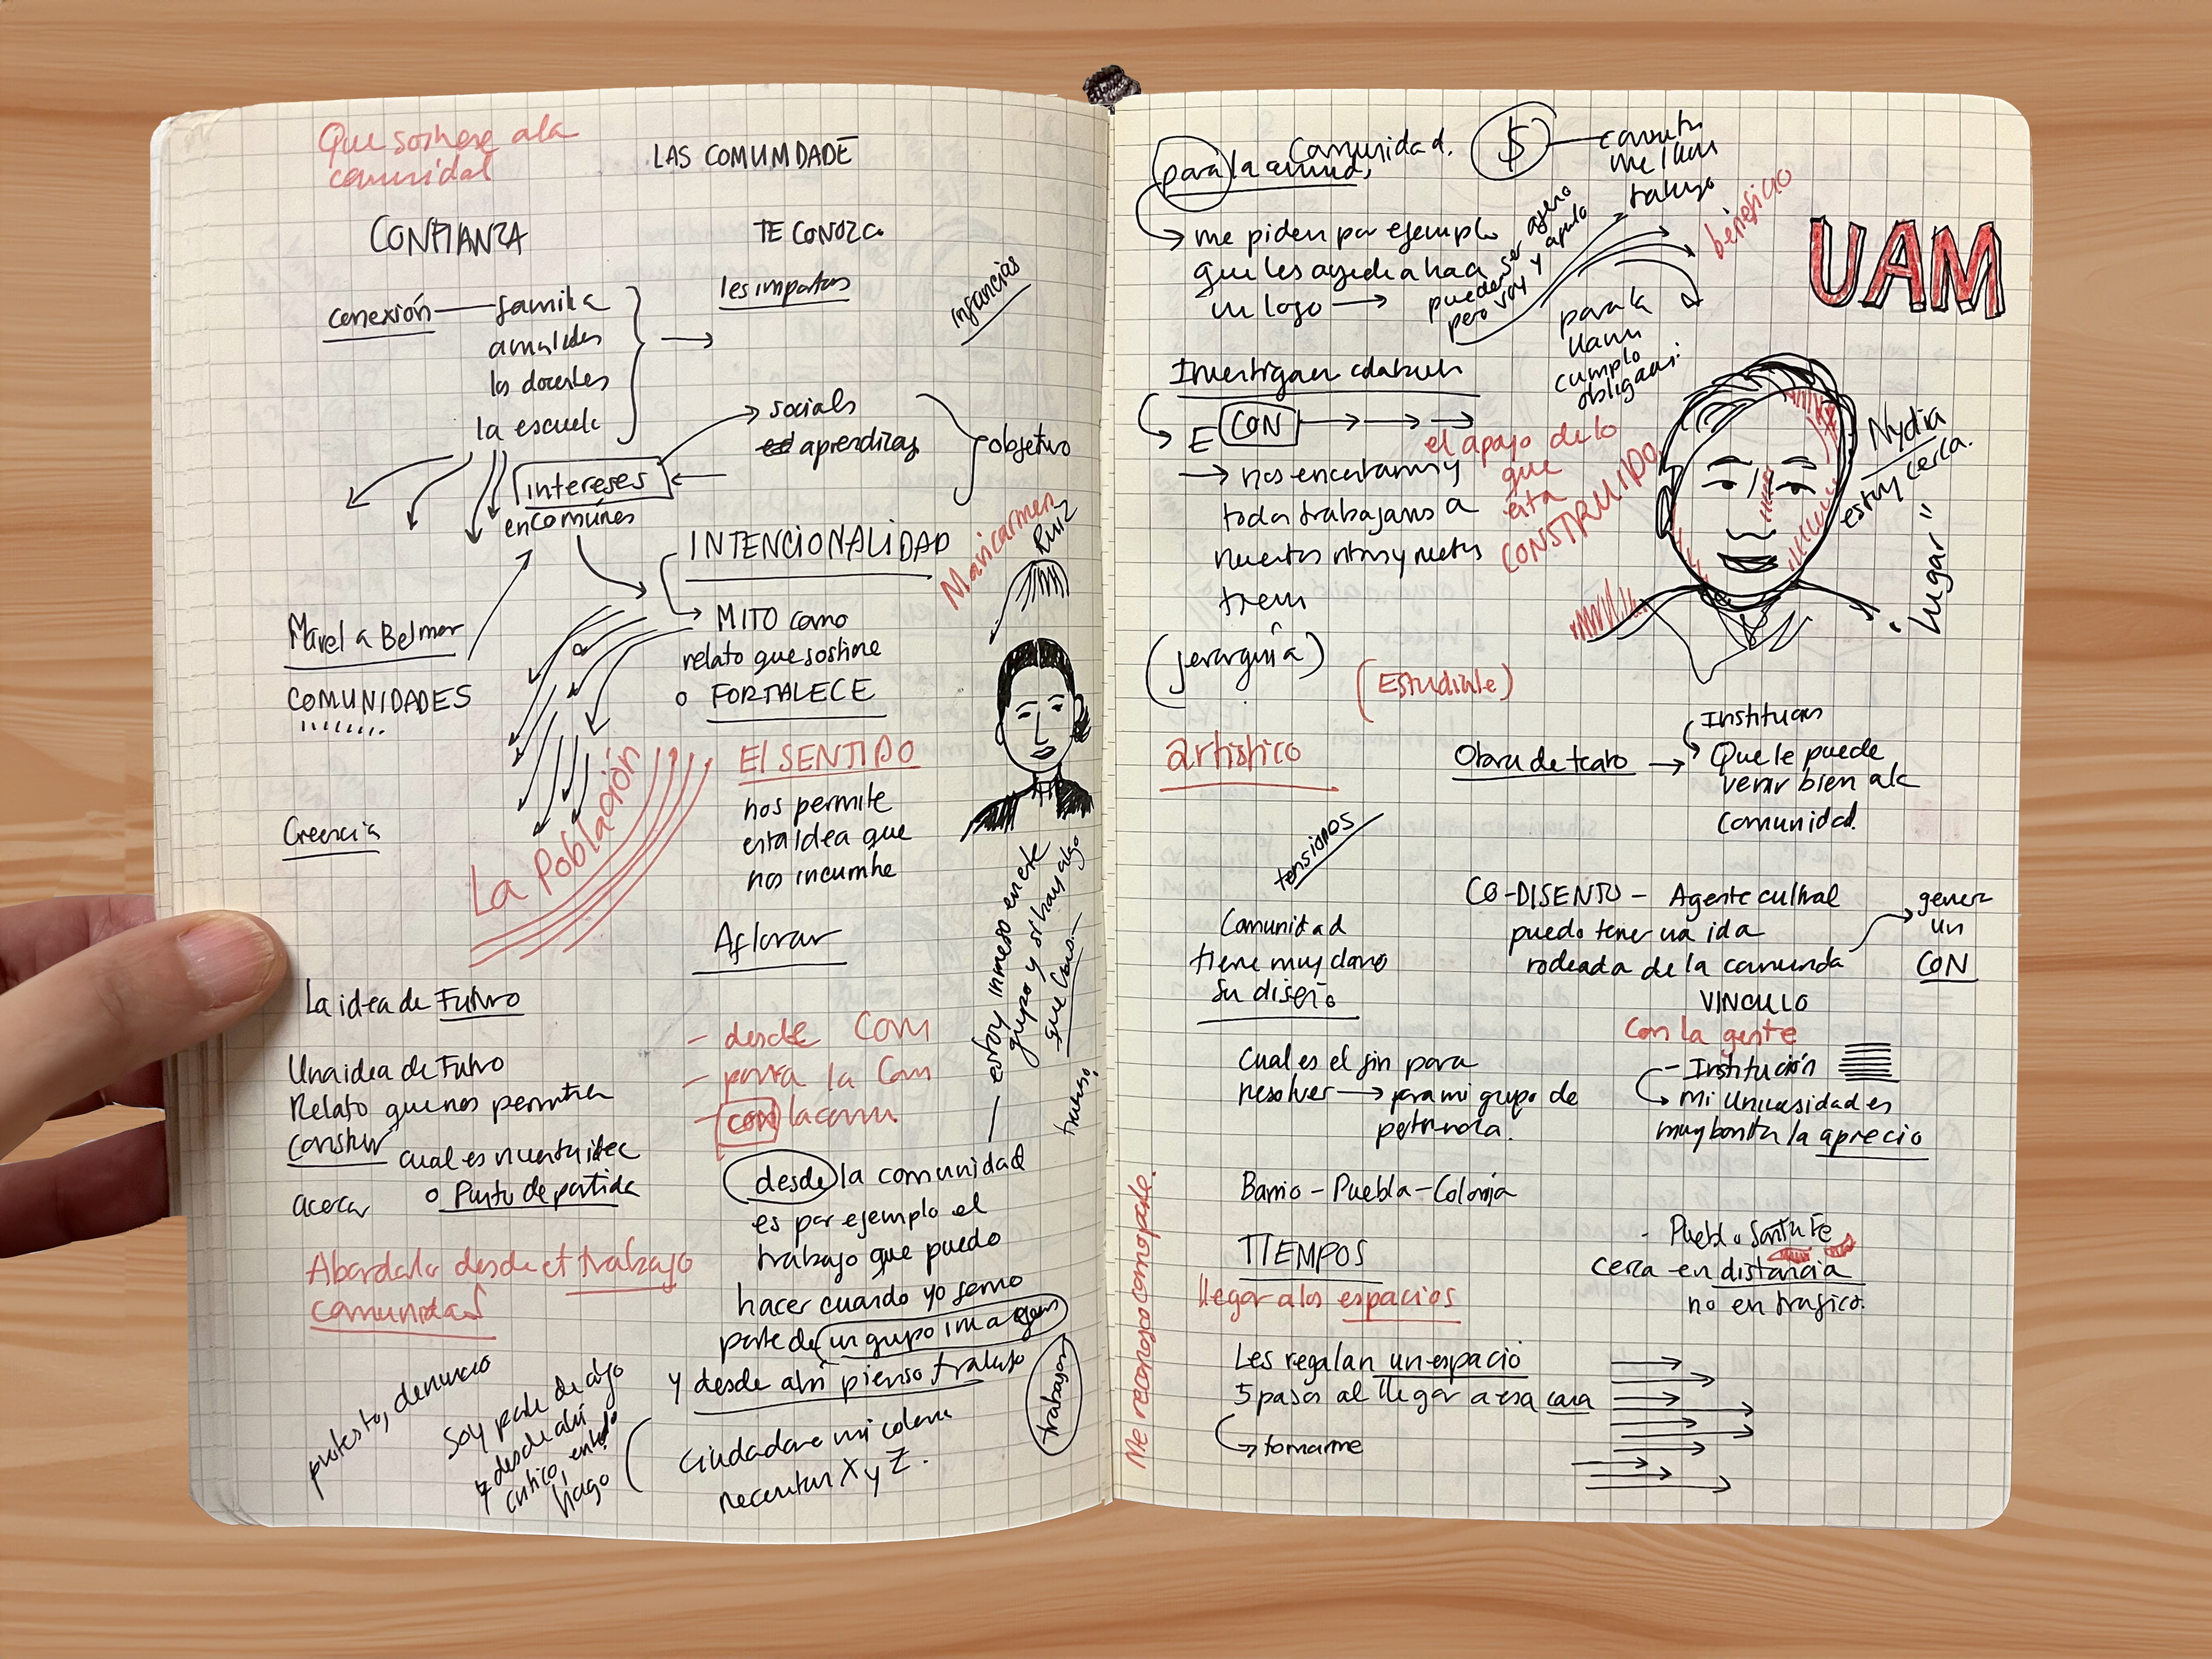 Que sostiene a la
comunidad
LAS COMUMDADE
CONFIANZA
TE CONOZCO
conexión — familia
les importas
infancias
amistades
los docentes
la escuela
socials
aprendizas
objetivo
intereses
en comúnes
INTENCIONALIDAD
Maricarmen
Ruiz
MITO como
relato que sostiene
o FORTALECE
Marel a Belmor
COMUNIDADES
El SENTIDO
nos permite
esta idea que
nos incumbe
Creencia
La Población
Aflorar
estoy inmerso en este
grupo y si hay algo
que
trabajo
La idea de Futuro
Una idea de Futuro
Relato que nos permitia
construir
cual es nuestra idea
acerca o Punto de partida
- desde Com
- para la Com
- con la comu.
Abordarlo desde el trabajo
comunidad
desde la comunidad
es por ejemplo el
trabajo que puedo
hacer cuando yo formo
parte de un grupo
y desde ahí pienso trabajo
trabajar
protesta, denuncia
Soy parte de algo
y desde ahí
critico,
hago
Ciudadano mi colonia
necesitan X y Z.
Comunidad.
para la comund,
$
me llam
trabajo
me piden por ejemplo
que les ayude a hacer
un logo
pueden ser ajeno
pero voy y apoyo
beneficio
UAM
para la
Uam
cumplo
Investigan
E CON
el apoyo de lo
que
esta
CONSTRUIDO
nos encontramos y
todos trabajamos a
nuestros ritmos y metas
(jerarquía)
(Estudiante)
Nydia
estoy cerca.
"lugar"
artístico
Obra de teatro
Institucion
Que le puede
venir bien a la
comunidad.
tensiones
Comunidad
tiene muy claro
su diseño
CO-DISENTO - Agente cultural
puedo tener una ida
rodeada de la comunida
VINCULO
con la gente
generar
un
CON
Cual es el fin para
resolver para mi grupo de
pertenencia.
- Institución
mi universidad es
muy bonita la aprecio
Barrio - Puebla - Colonia
Me reconozco como parte.
TIEMPOS
llegar a los espacios
- Pueblo Santa Fe
cerca en distancia
no en trafico.
Les regalan un espacio
5 pasos al llegar a esa casa
tomarme